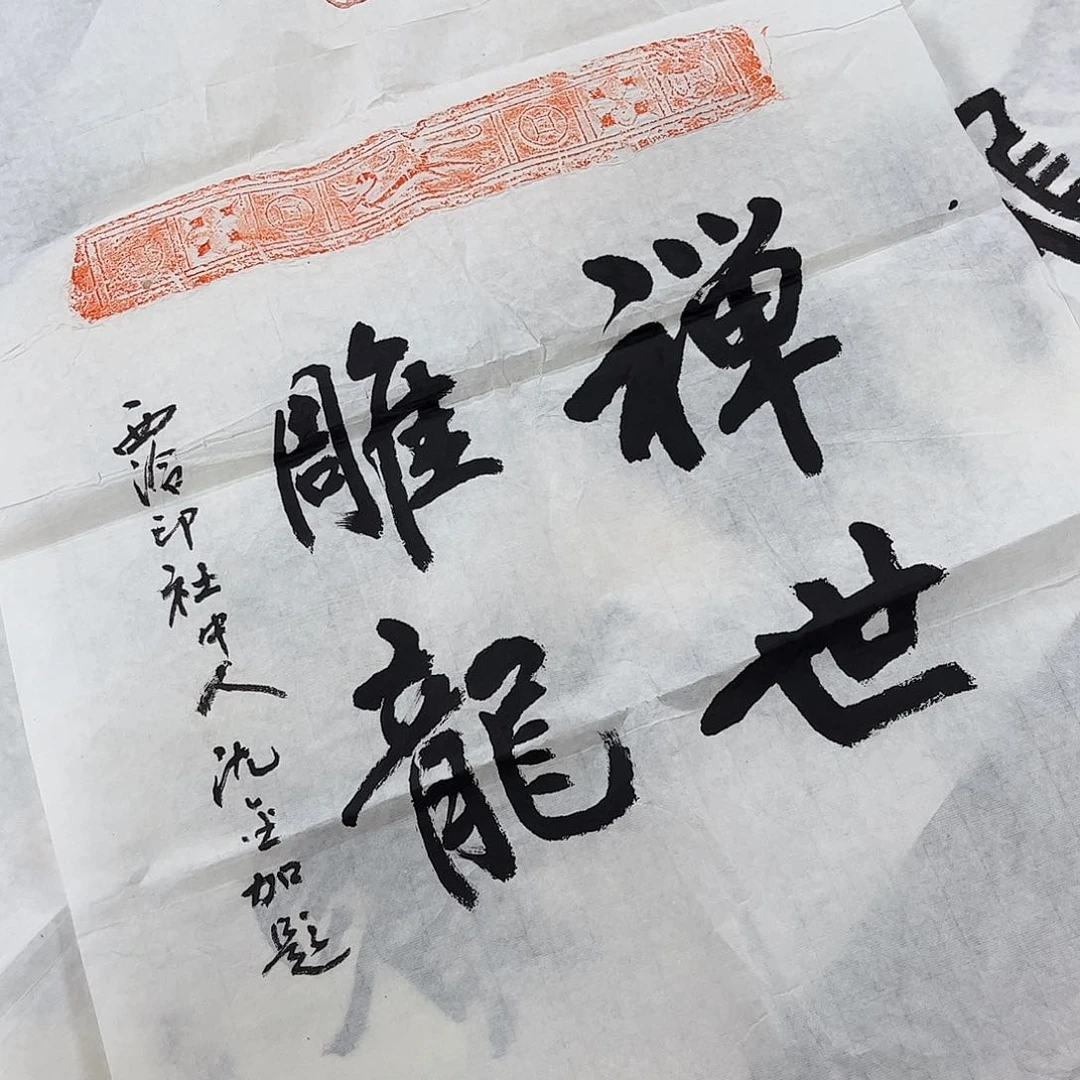 禅世
雕龍
西泠印社中人沈金加題